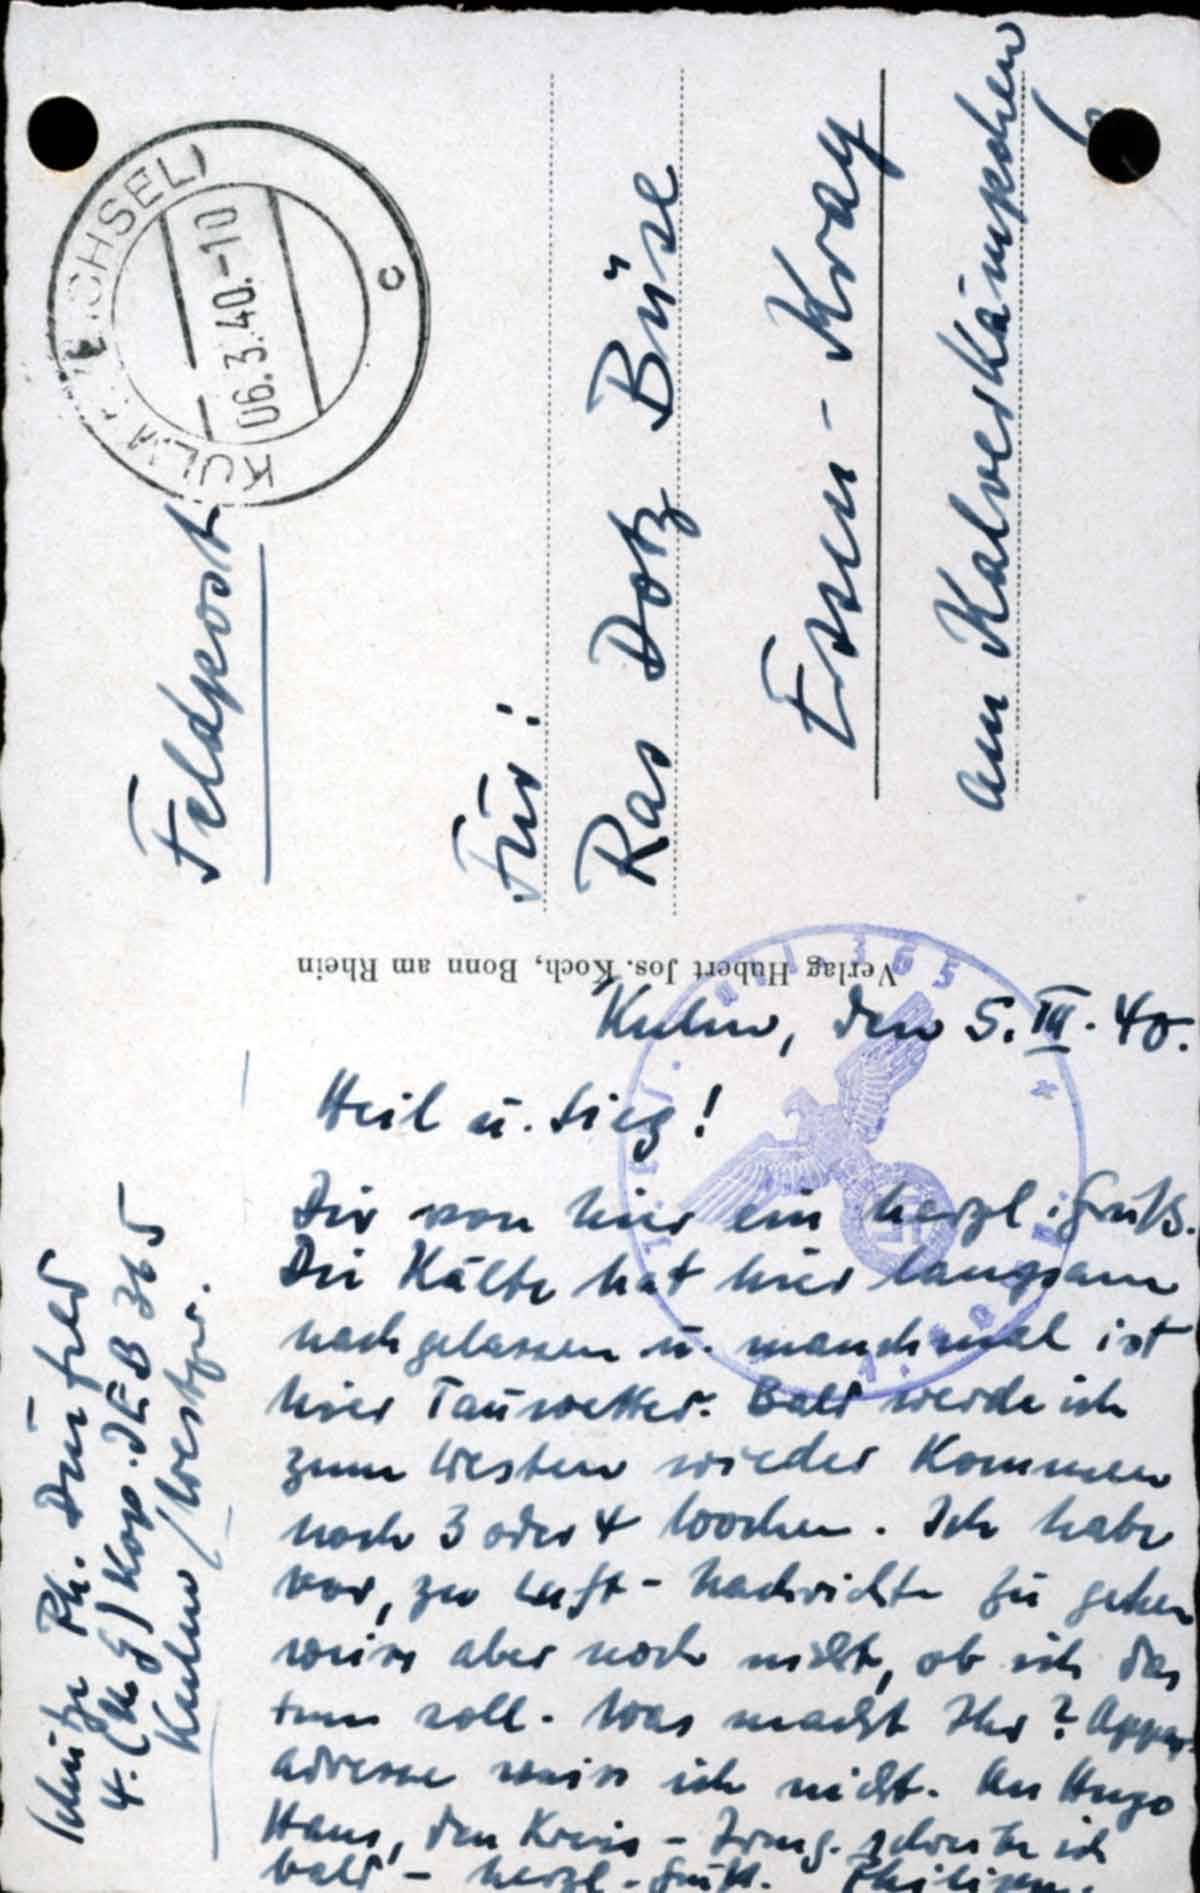 KULM (WEICHSEL)
06.3.40.-10
c
Feldpost
Für:
Ras Dotz Büse
Essen - Kray
Am Kalverkämpchen
Verlag Hubert Jos. Koch, Bonn am Rhein
365
Kulm, den 5. III. 40.
Heil u. Sieg!
Dir von hier ein herzl. Gruß.
Die Kälte hat hier langsam
nachgelassen u. manchmal ist
hier Tauwetter. Bald werde ich
zum Westen wieder kommen
noch 3 oder 4 Wochen. Ich habe
vor, zu Luft-Nachrichte zu gehen
weiss aber noch nicht, ob ich das
tun soll. Was macht Ihr?
adresse weiss ich nicht. An Hugo
Haus, den Kreis - Jrmg. schreibe ich
bald - herzl. Gruß. Philipp.
Schütze Ph. Dürrfeld
4. (M.G) Kop. JEB 365
Kulm / Westpr.